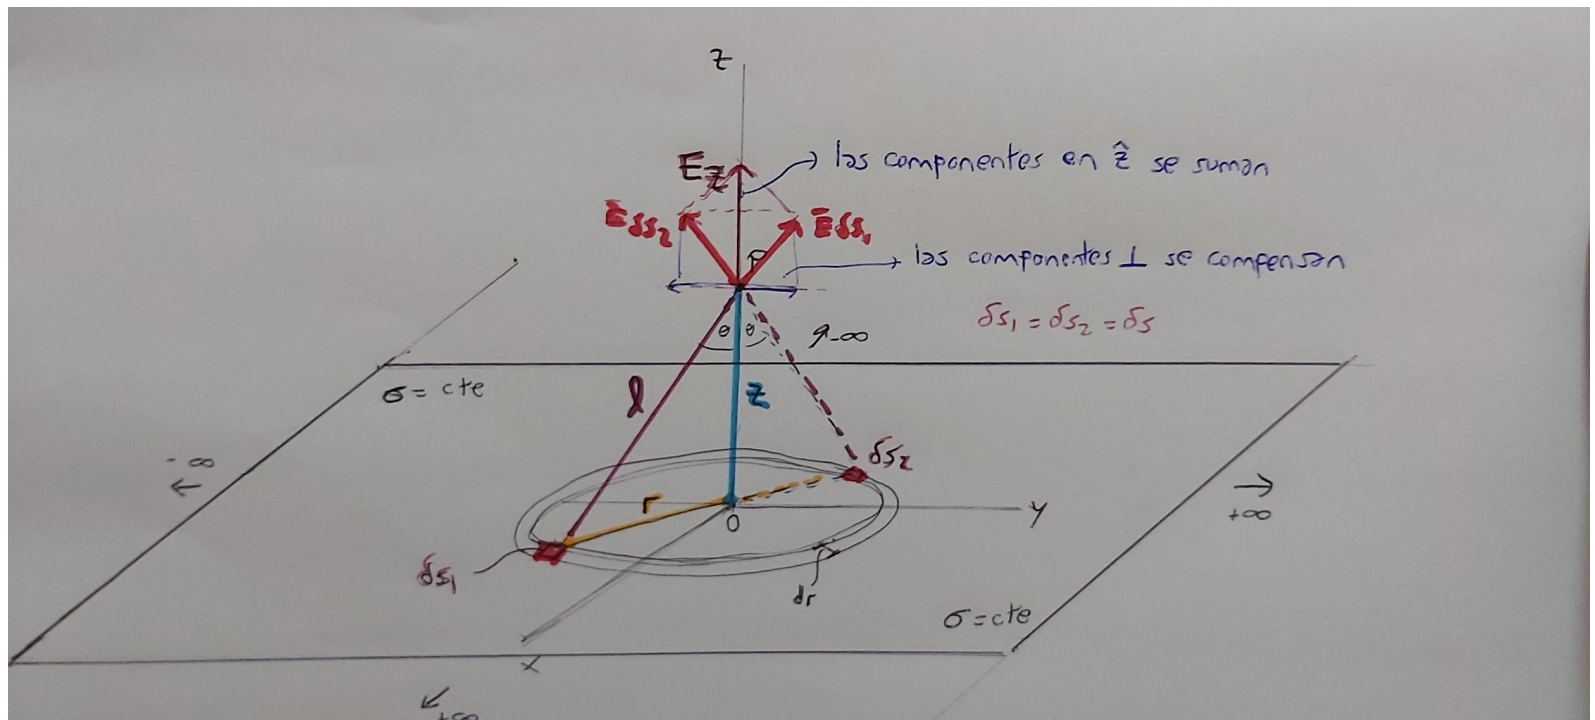 z
E_z
las componentes en ẑ se suman
Ē_δs₂
Ē_δs₁
P
las componentes ⊥ se compensan
δs₁ = δs₂ = δs
θ θ
σ = cte
l
z
-∞
←
δs₂
r
O
y
→
+∞
δs₁
dr
σ = cte
x
↙
+∞